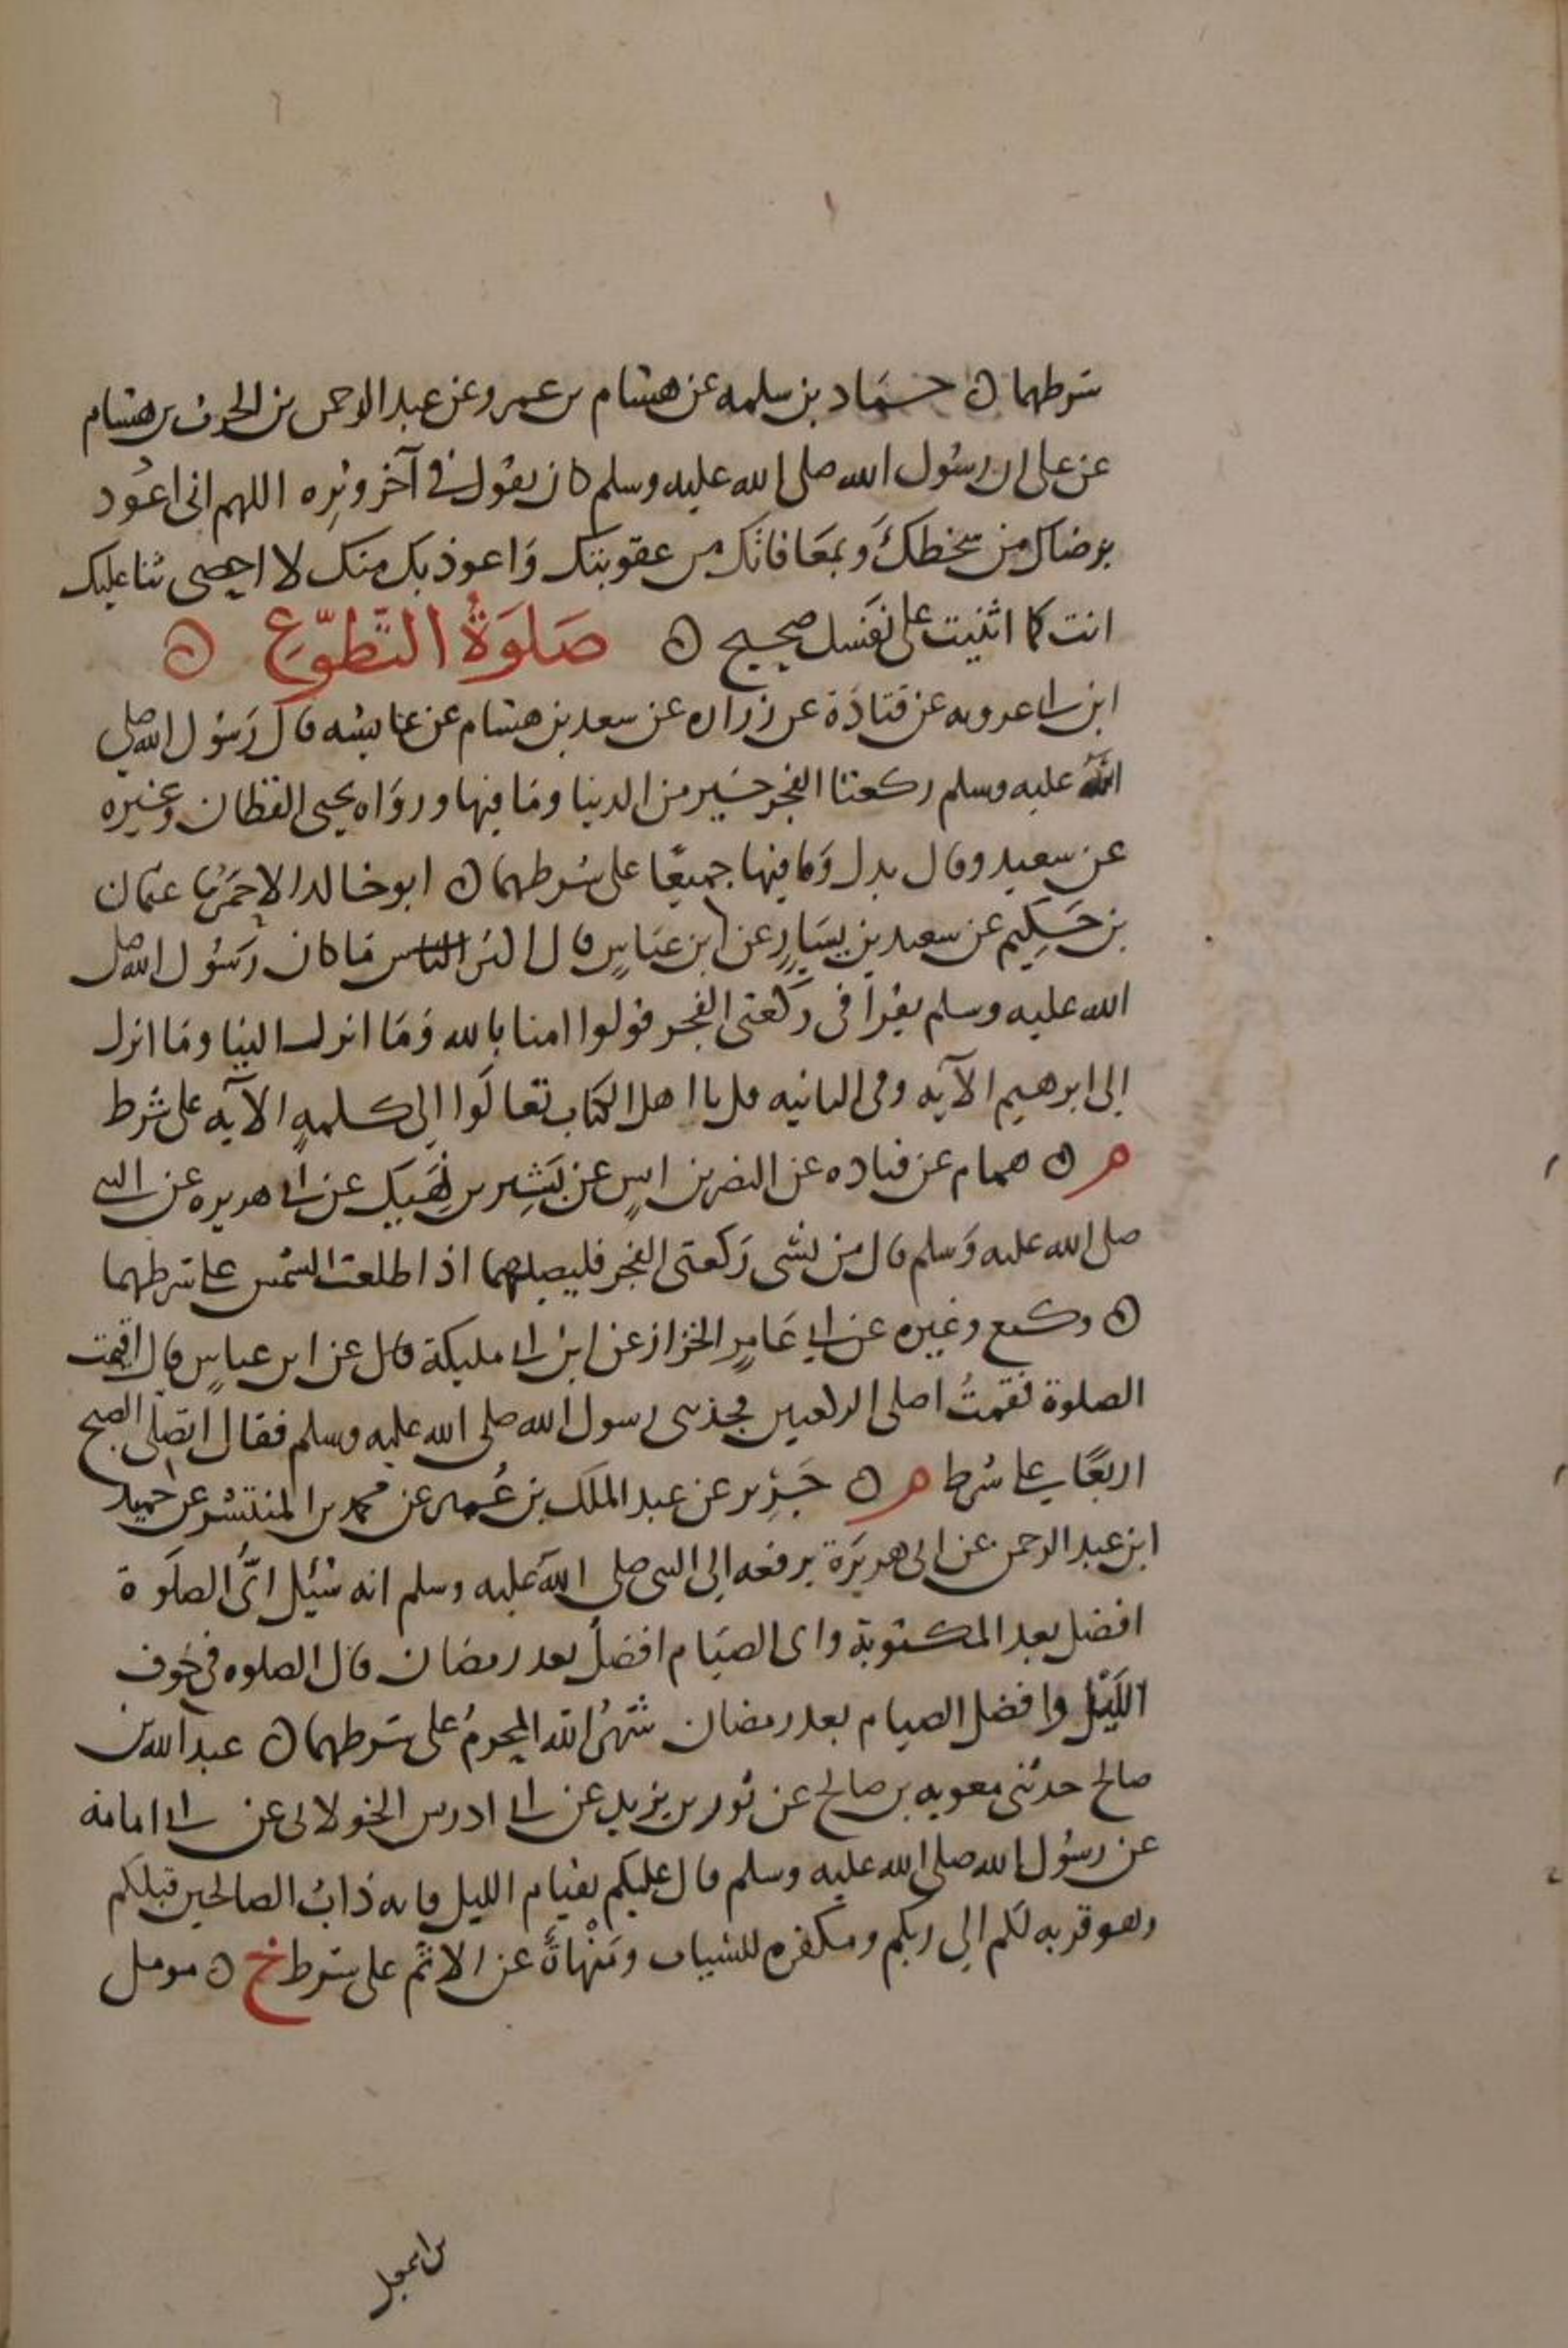 شرطهما ه حماد بن سلمه عن هشام بن عمرو عن عبد الرحمن بن الحرث بن هشام
عن على ان رسول الله صلى الله عليه وسلم كان يقول في آخر وتره اللهم انى اعوذ
برضاك من سخطك وبمعافاتك من عقوبتك واعوذ بك منك لا احصى ثنا عليك
انت كما اثنيت على نفسك صحيح ه صَلوَةُ التَّطوّعِ ه
ابن ابى عروبه عن قتادة عن زراره عن سعد بن هشام عن عايشه قال رسول الله صلى
الله عليه وسلم ركعتا الفجر خير من الدنيا وما فيها ورواه يحيى القطان وغيره
عن سعيد وقال بدل وما فيها جميعًا على شرطهما ه ابو خالد الاحمر ثنا عثمان
بن حكيم عن سعيد بن يسارٍ عن ابن عباسٍ قال اكثر الناس ما كان رسول الله صلى
الله عليه وسلم يقرأ فى ركعتى الفجر قولوا امنا بالله وما انزل الينا وما انزل
الى ابرهيم الآيه وفى الثانيه قل يا اهل الكتاب تعالوا الى كلمهٍ الآيه على شرط
م ه همام عن قتاده عن النضر بن انسٍ عن بَشِير بن نَهِيك عن ابى هريره عن النبى
صلى الله عليه وسلم قال من نسى ركعتى الفجر فليصلهما اذا طلعت الشمس على شرطهما
ه وكيع وغيره عن ابى عامرٍ الخزاز عن ابن ابى مليكة عن ابن عباسٍ قال اقيمت
الصلوة فقمتُ اصلى الركعتين فجذبنى رسول الله صلى الله عليه وسلم فقال اتصلى الصبح
اربعًا على شرط م ه جرير عن عبد الملك بن عُمير عن محمد بن المنتشر عن حميد
ابن عبد الرحمن عن ابى هريرة يرفعه الى النبى صلى الله عليه وسلم انه سُئِل اىُّ الصلوة
افضل بعد المكتوبة واى الصيام افضلُ بعد رمضان قال الصلوه فى جوف
الليل وافضل الصيام بعد رمضان شهرُ الله المحرمُ على شرطهما ه عبد الله بن
صالح حدثنى معويه بن صالح عن ثور بن يزيد عن ابى ادريس الخولانى عن ابى امامة
عن رسول الله صلى الله عليه وسلم قال عليكم بقيام الليل فانه دابُ الصالحين قبلكم
وهو قربه لكم الى ربكم ومكفره للسيات ومَنْهاةٌ عن الاثم على شرط خ ه مومل
بن اسمعيل